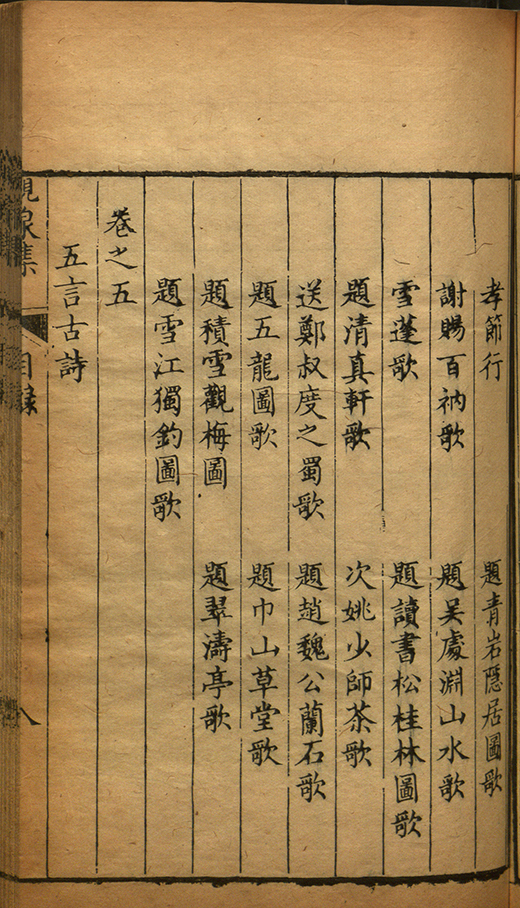 孝節行　題青岩隱居圖歌
謝賜百衲歌　題吴處淵山水歌
雪蓬歌　題讀書松桂林圖歌
題清真軒歌　次姚少師茶歌
送鄭叔度之蜀歌　題趙魏公蘭石歌
題五龍圖歌　題巾山草堂歌
題積雪觀梅圖　題翠濤亭歌
題雪江獨釣圖歌
卷之五
五言古詩
集　目録　八